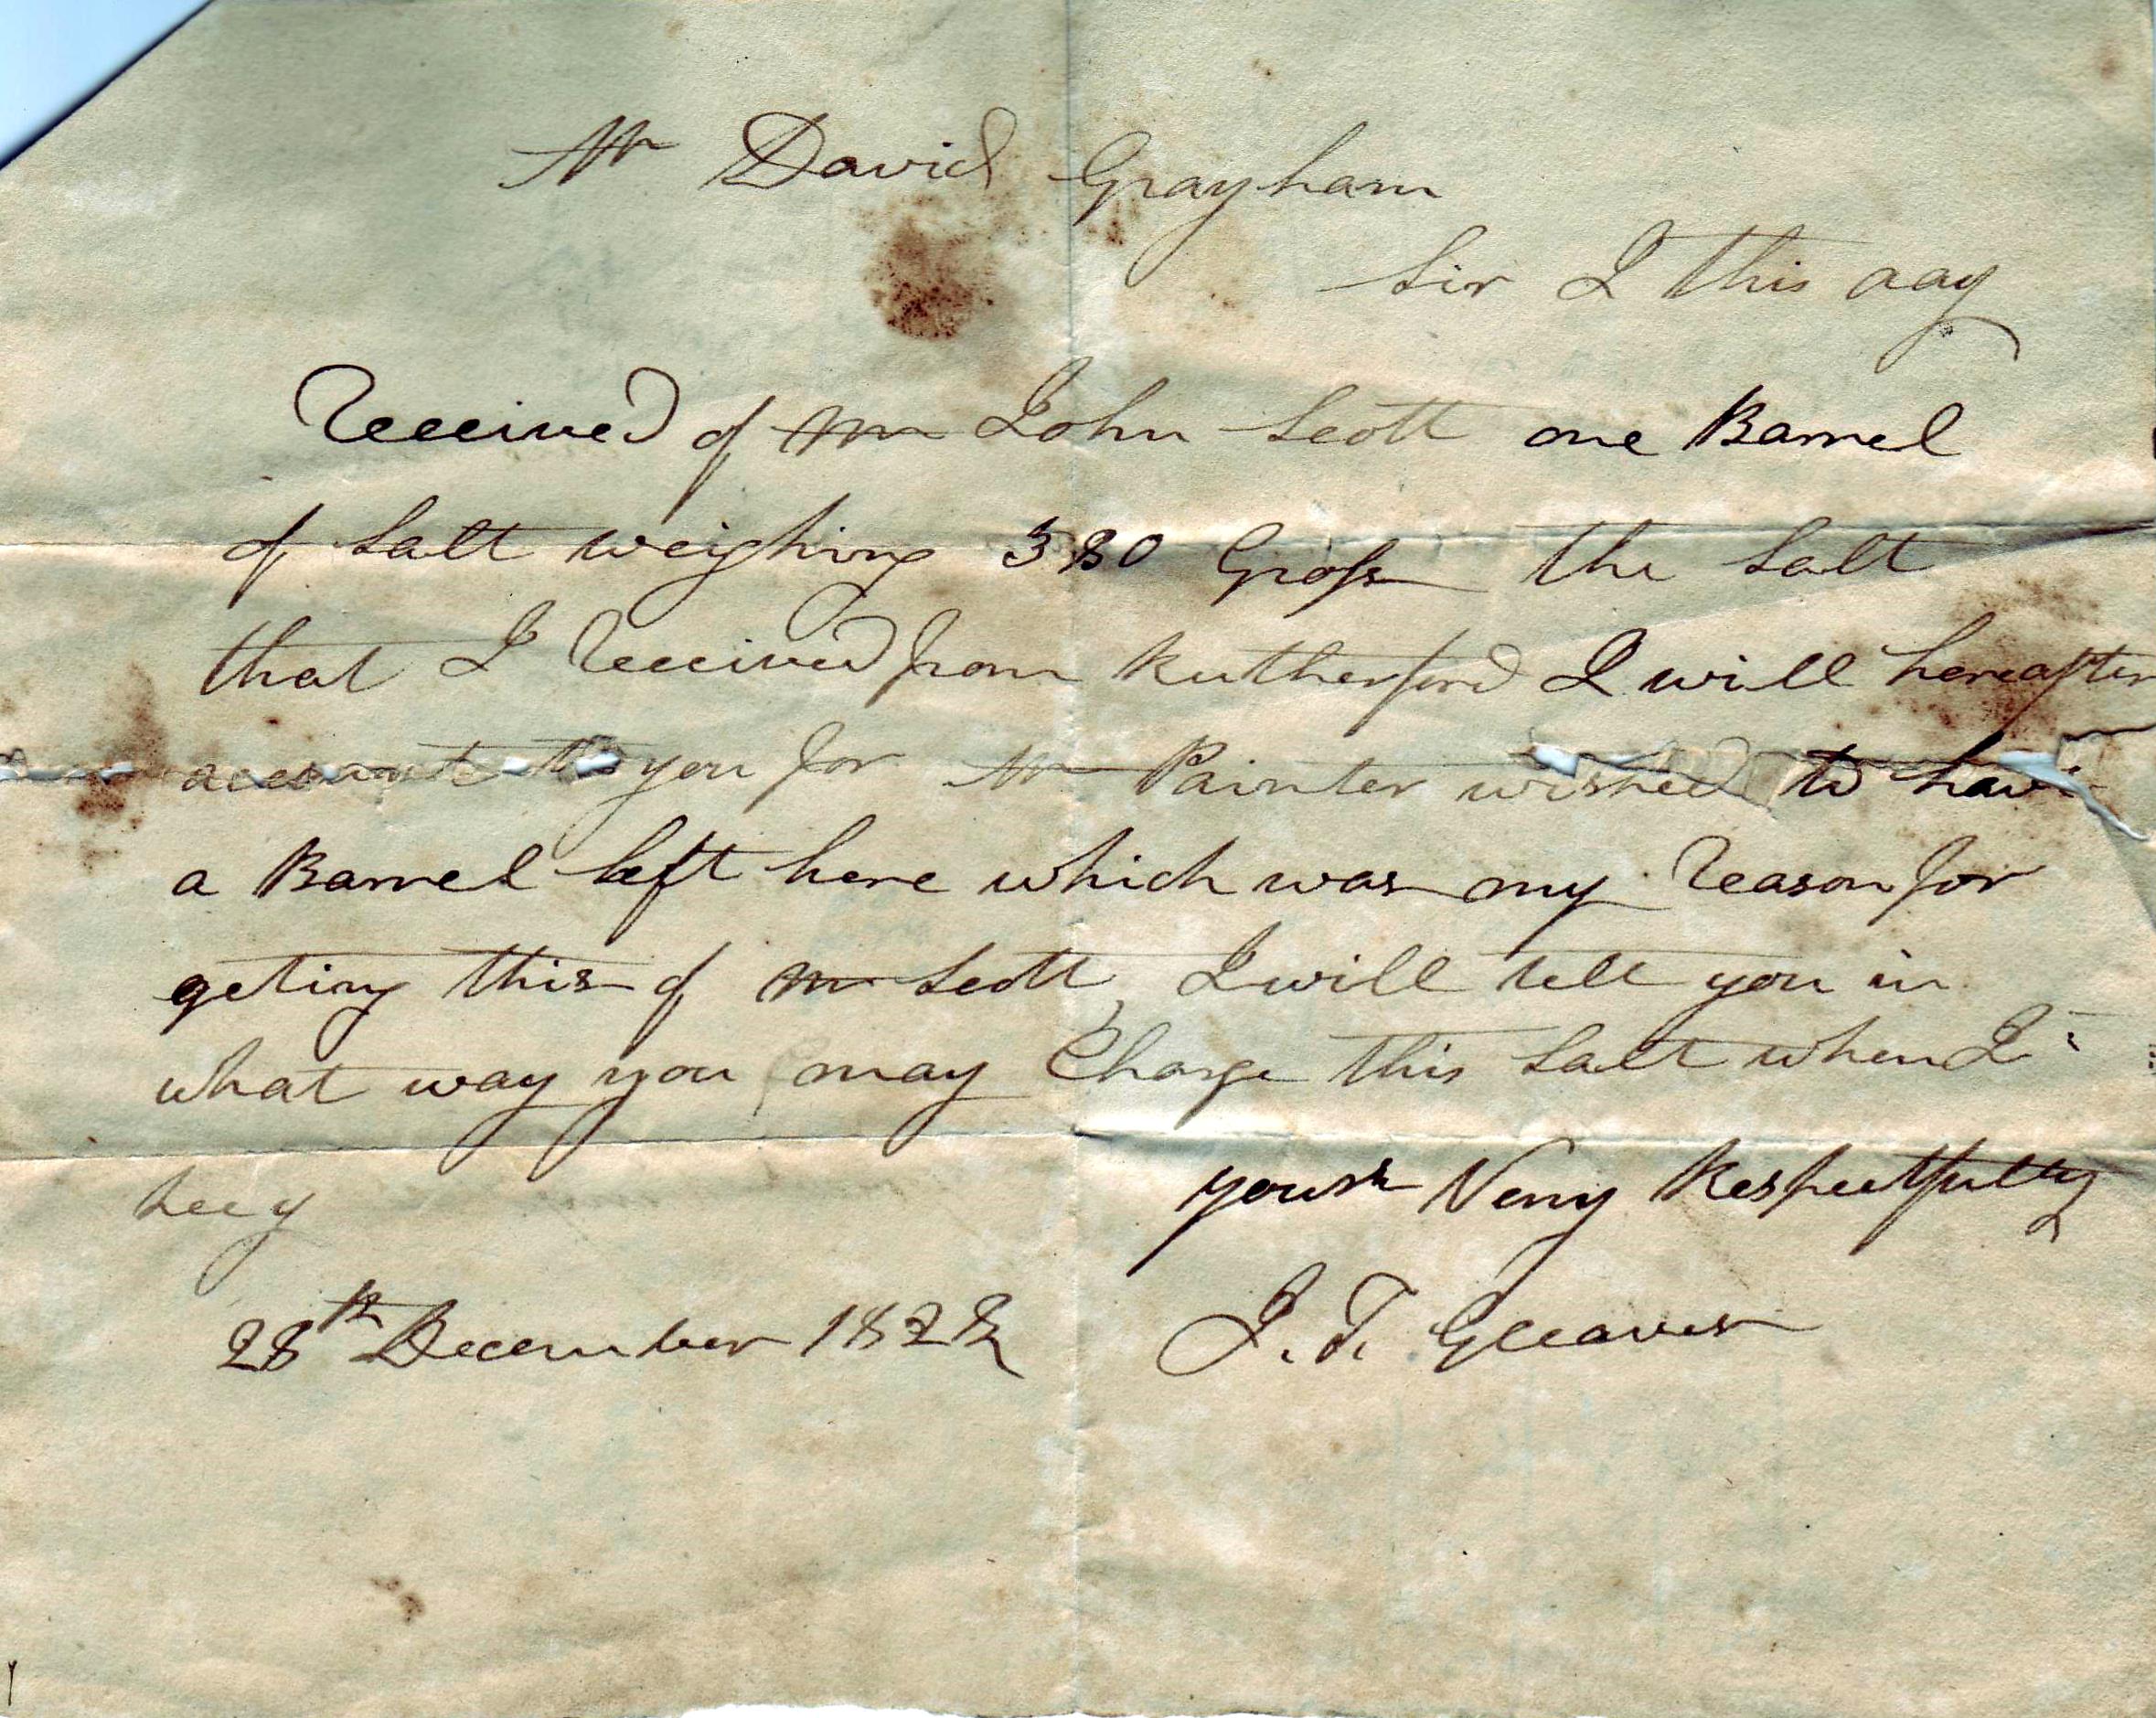 Mr David Grayham
Sir I this day
Received of Mr John Scott one Barrel
of Salt weighing 380 Gross the Salt
that I Received from Rutherford I will hereafter
account to you for Mr Painter wished to have
a Barrel left here which was my Reason for
geting this of Mr Scott, I will tell you in
what way you may Charge this Salt when I
see y
yours Very Respectfully
28th December 1828
J. T. Gleaves